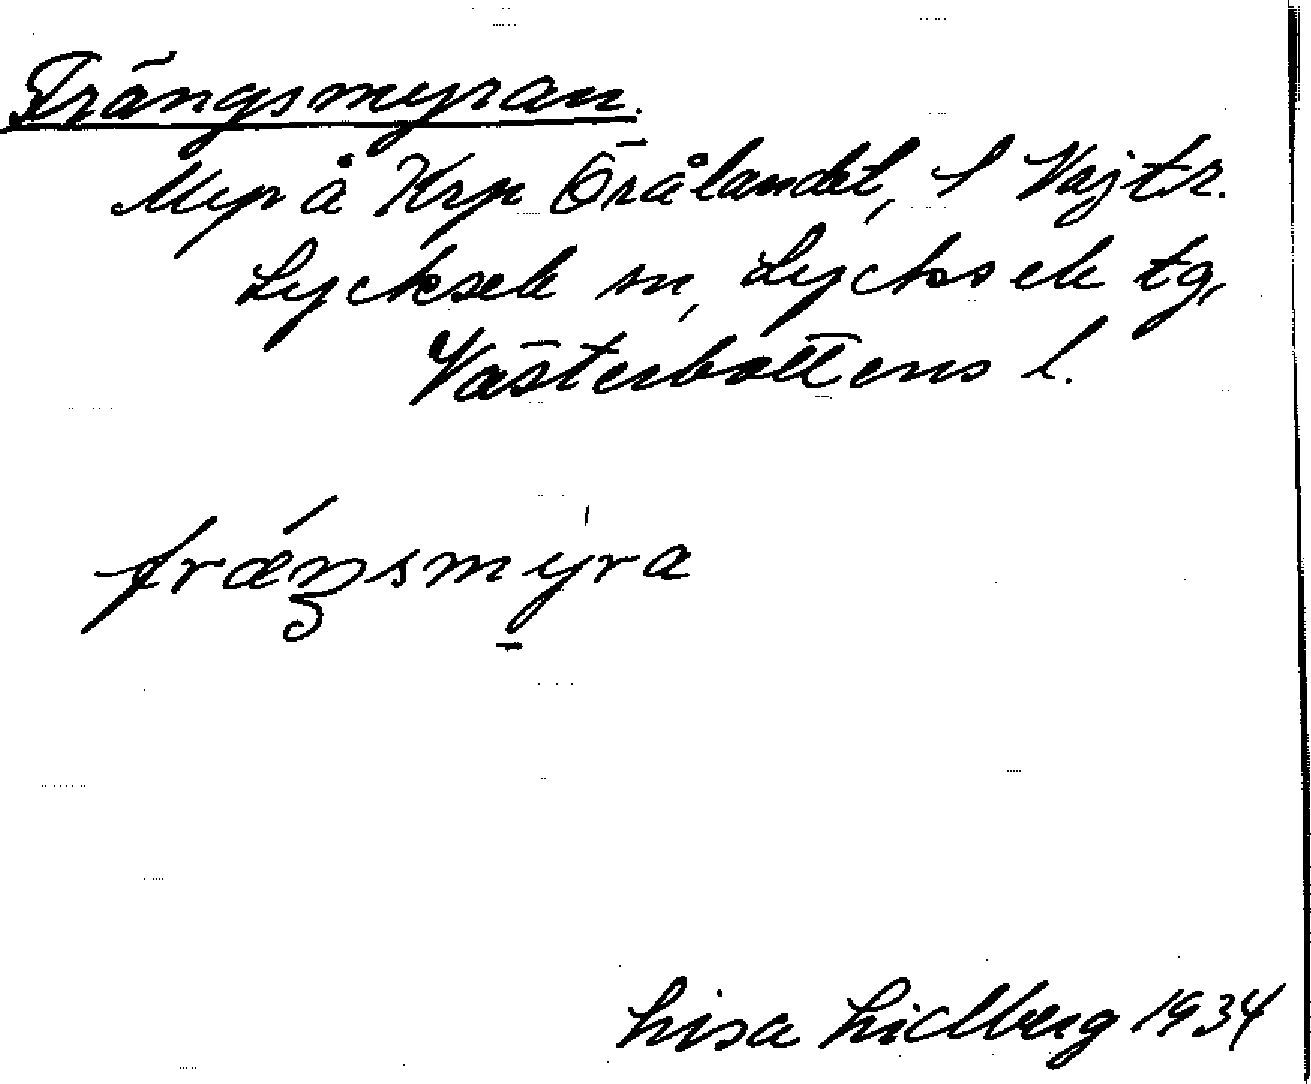 Trängsmyran.
Myr å Krp Örålandet, S Vajtr.
Lycksele sn, Lycksele tg,
Västerbottens l.
træŋsmyra
Lisa Lidberg 1934